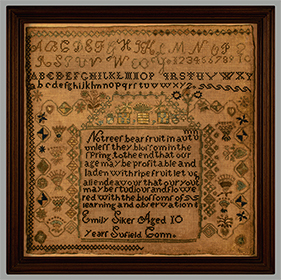 A B C D E F G H I K L M N O P
R S T U V W X Y 1 2 3 4 5 6 7 8 9 10
A B C D E F G H I K L M O P Q R S T U V W X Y
a b c d e f g h i k l m n o p q r s t u v w x y z
No trees bear fruit in autu
unless they blossom in the
spring to the end that our
age may be profitable and
laden with ripe fruit let us
all endeavour that our you
may be studious and flowe
red with the blossoms of
learning and observation
Emily Siker Aged 10
years Sufield Conn.